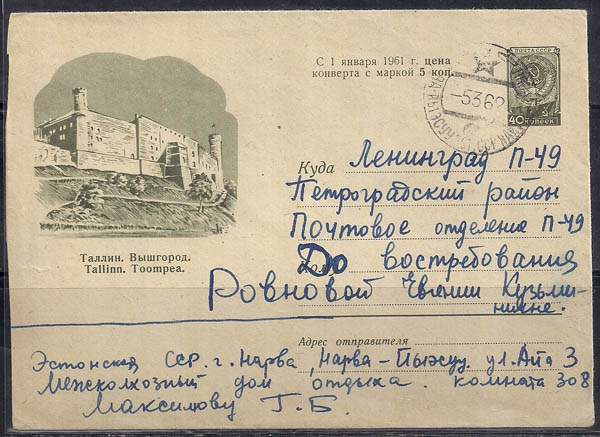 С 1 января 1961 г. цена
конверта с маркой 5 коп.
ПОЧТА СССР
40 КОПЕЕК
-5 3 62
Таллин. Вышгород.
Tallinn. Toompea.
Куда Ленинград П-49
Петроградский район
Почтовое отделение П-49
До востребования
Ровновой Евгении Кузьми-
ничне.
Адрес отправителя
Эстонская ССР. г. Нарва, Нарва-Йыэсуу. ул. Айа 3
Межколхозный дом отдыха. комната 308
Максимову Г.Б.